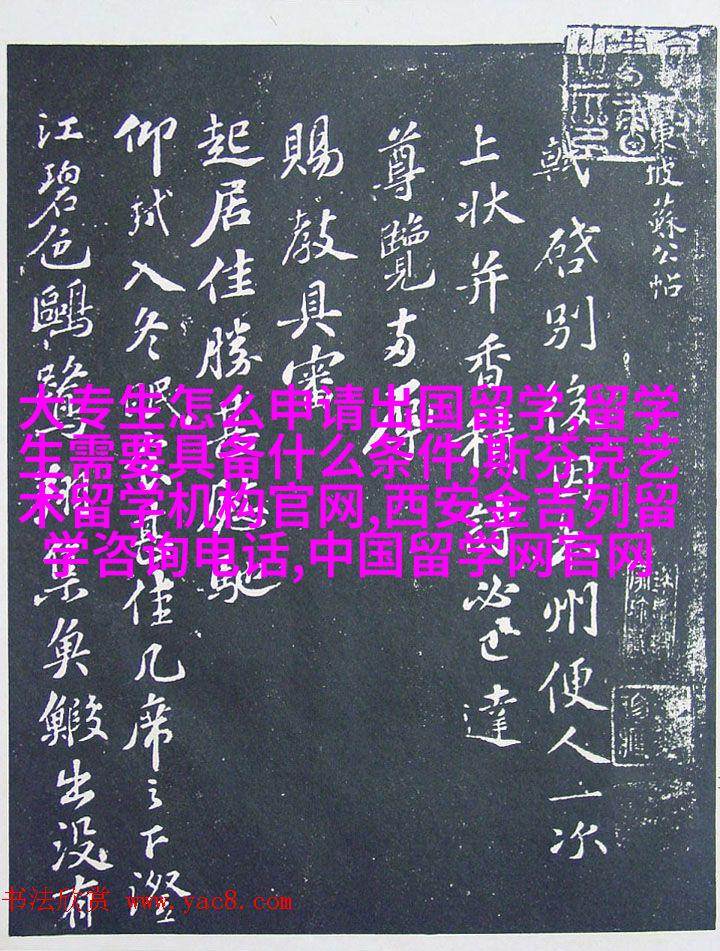 東坡蘇公帖
軾啓別後因本州便人一次
上狀并香積詩必已達
尊覽兩辱
賜教具審
起居佳勝甚慰馳
仰軾入冬眠食甚佳几席之下澄
江碧色鷗鷺翔集魚鰕出沒有
大专生怎么申请出国留学,留学
生需要具备什么条件,斯芬克艺
术留学机构官网,西安金吉列留
学咨询电话,中国留学网官网
书法欣赏 www.yac8.com